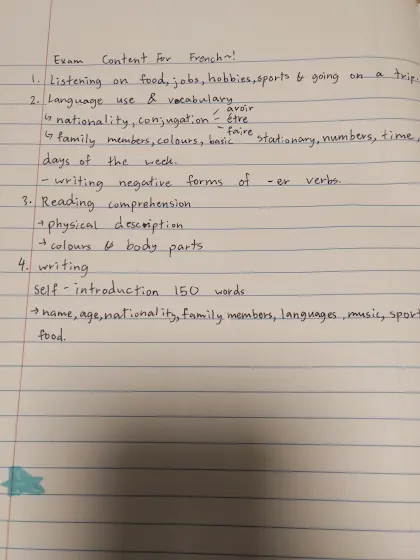 Exam Content For French~!
1. Listening on food, jobs, hobbies, sports & going on a trip.
2. Language use & vocabulary
↳ nationality, conjugation - avoir
- être
- faire
↳ family members, colours, basic stationary, numbers, time,
days of the week.
- writing negative forms of -er verbs.
3. Reading comprehension
→ physical description
→ colours & body parts
4. writing
self-introduction 150 words
→ name, age, nationality, family members, languages, music, sport
food.